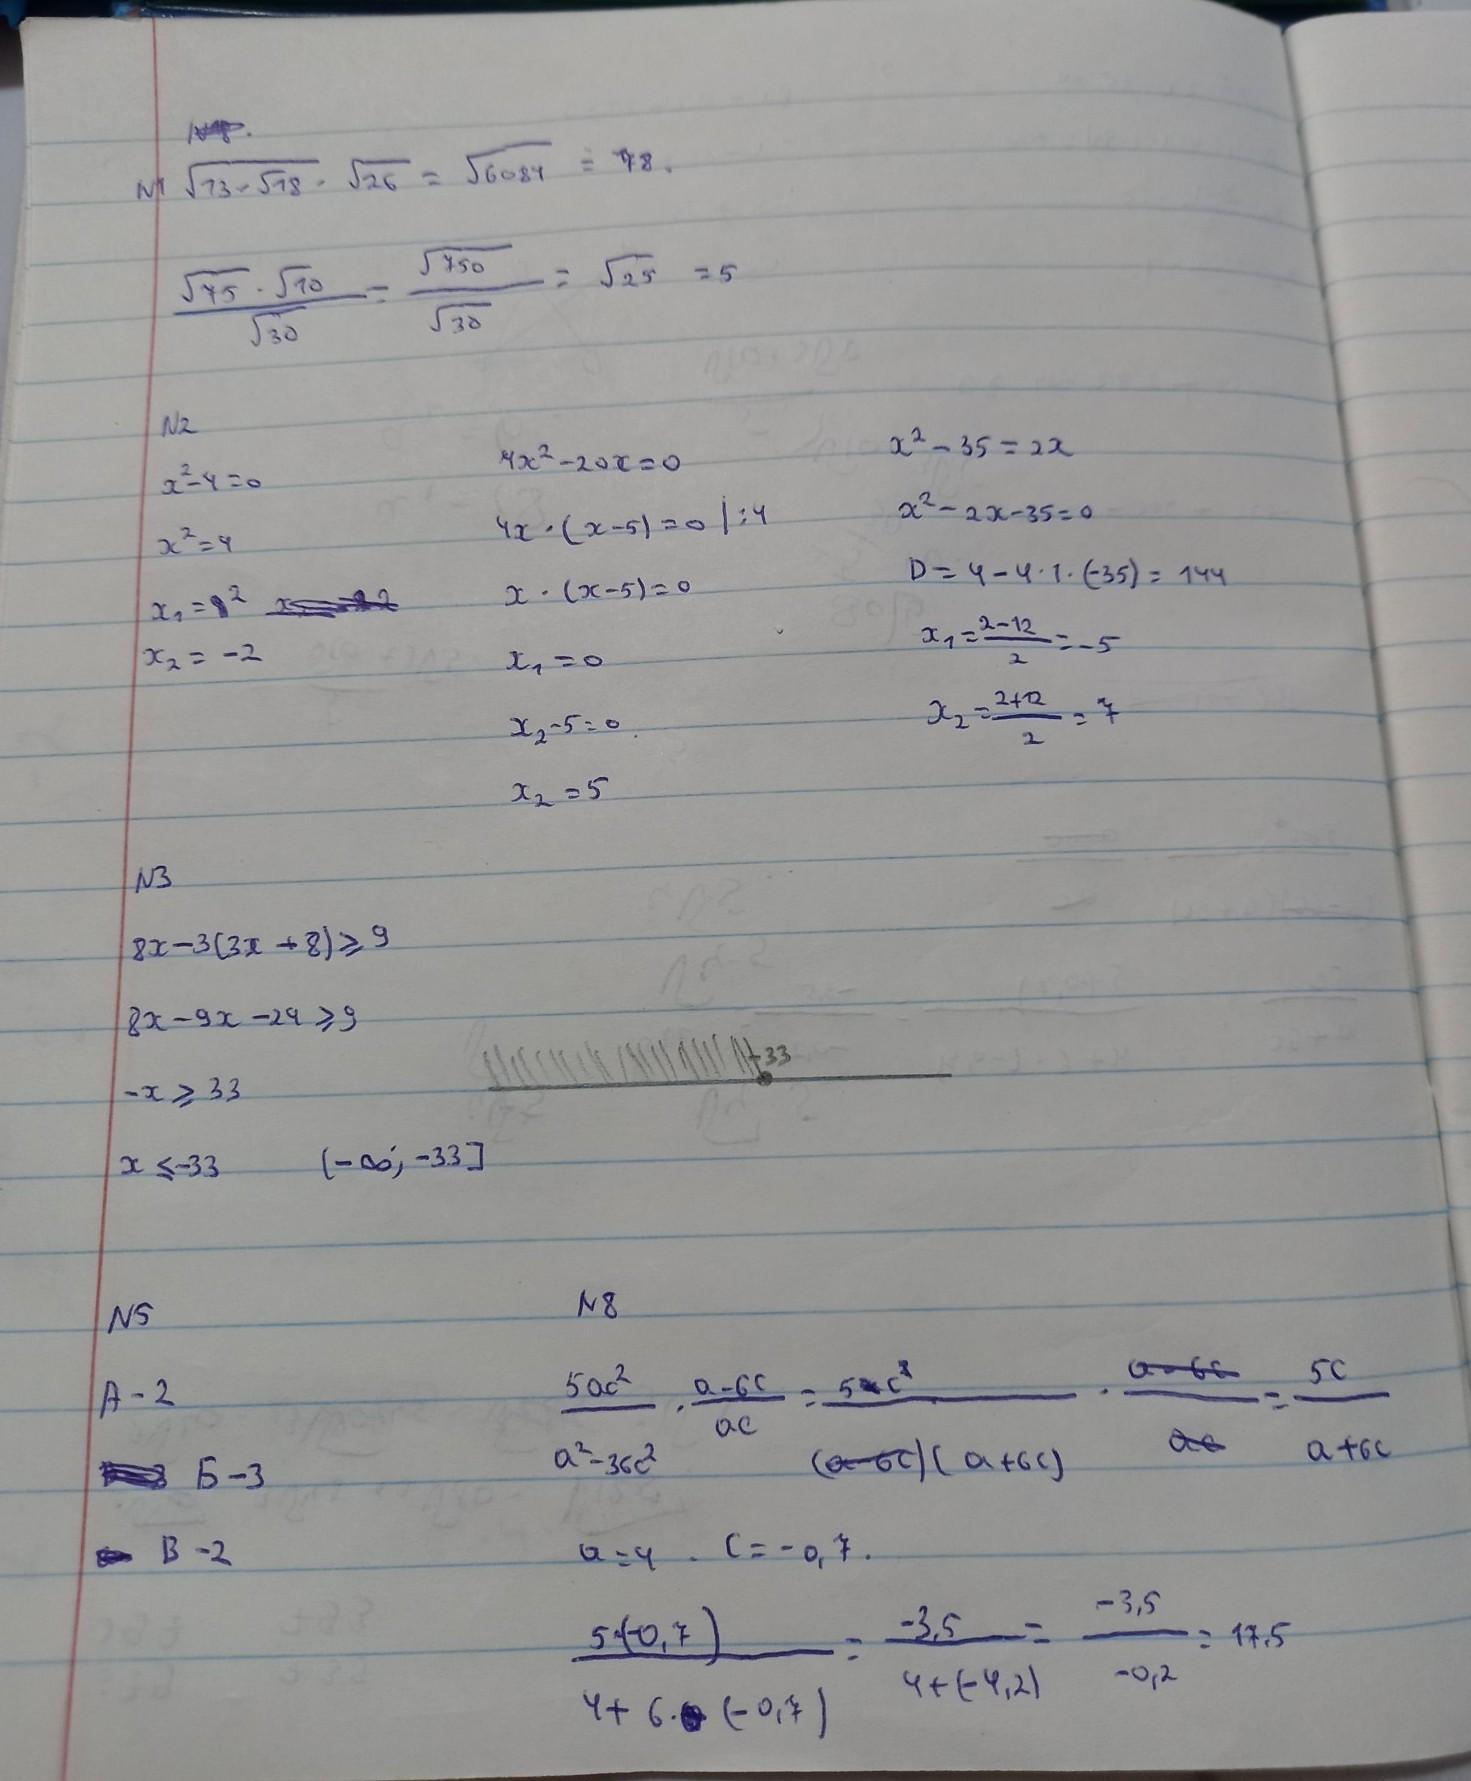 N1 √13·√18 · √26 = √6084 = 78.
√75 · √10 / √30 = √750 / √30 = √25 = 5
N2
x²-4=0
x²=4
x₁=2
x₂ = -2
4x²-20x=0
4x·(x-5)=0 |:4
x·(x-5)=0
x₁=0
x₂-5=0.
x₂=5
x²-35=2x
x²-2x-35=0
D=4-4·1·(-35)=144
x₁=2-12/2=-5
x₂=2+12/2=7
N3
8x-3(3x+8)⩾9
8x-9x-24⩾9
-x⩾33
-33
x⩽-33 (-∞; -33]
N5
А-2
Б-3
В-2
N8
5ac²/a²-36c² · a-6c/ac = 5ac²/(a-6c)(a+6c) · a-6c/ac = 5c/a+6c
a=4. c=-0,7.
5·(-0,7)/4+6·(-0,7) = -3,5/4+(-4,2) = -3,5/-0,2 = 17,5